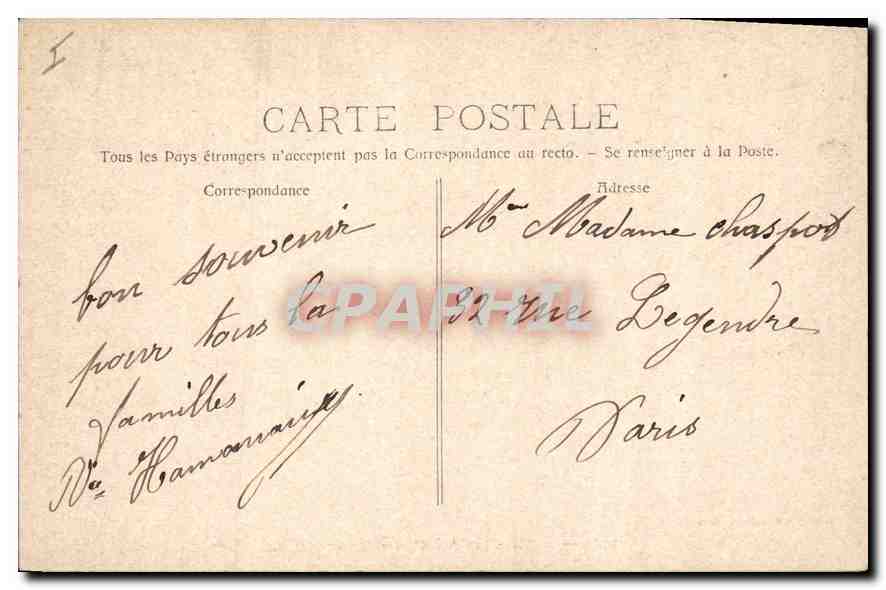 I
CARTE POSTALE
Tous les Pays étrangers n'acceptent pas la Correspondance au recto. – Se renseigner à la Poste.
Correspondance
bon souvenir
pour tous la
familles
Vve
Adresse
Mme Madame Chaspot
92 rue Legendre
Paris
CPAPHIL